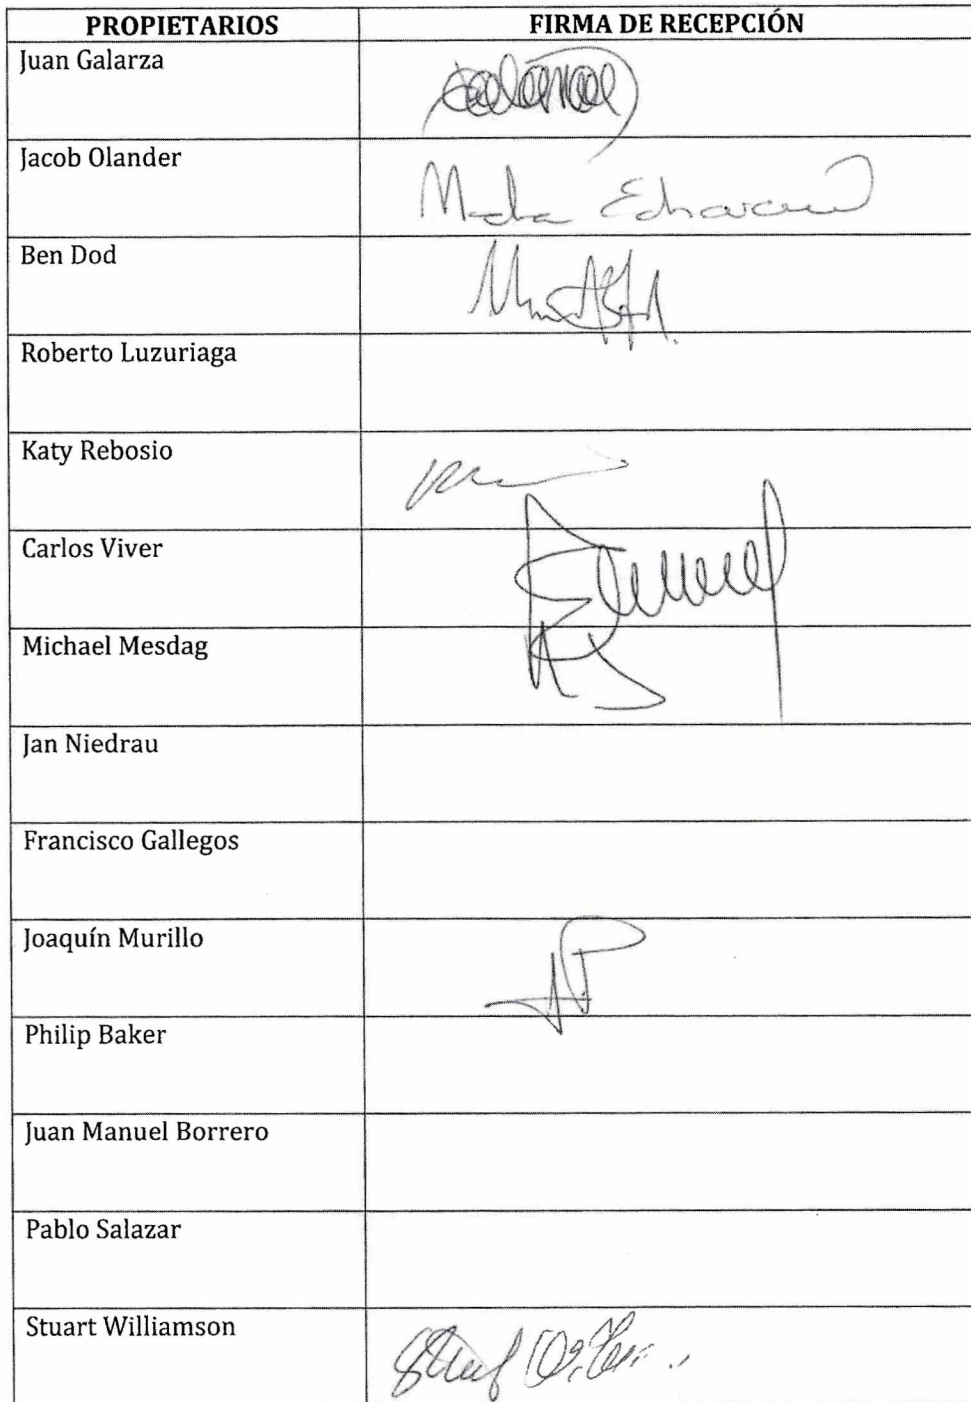 PROPIETARIOS FIRMA DE RECEPCIÓN
Juan Galarza
Jacob Olander
Ben Dod
Roberto Luzuriaga
Katy Rebosio
Carlos Viver
Michael Mesdag
Jan Niedrau
Francisco Gallegos
Joaquín Murillo
Philip Baker
Juan Manuel Borrero
Pablo Salazar
Stuart Williamson